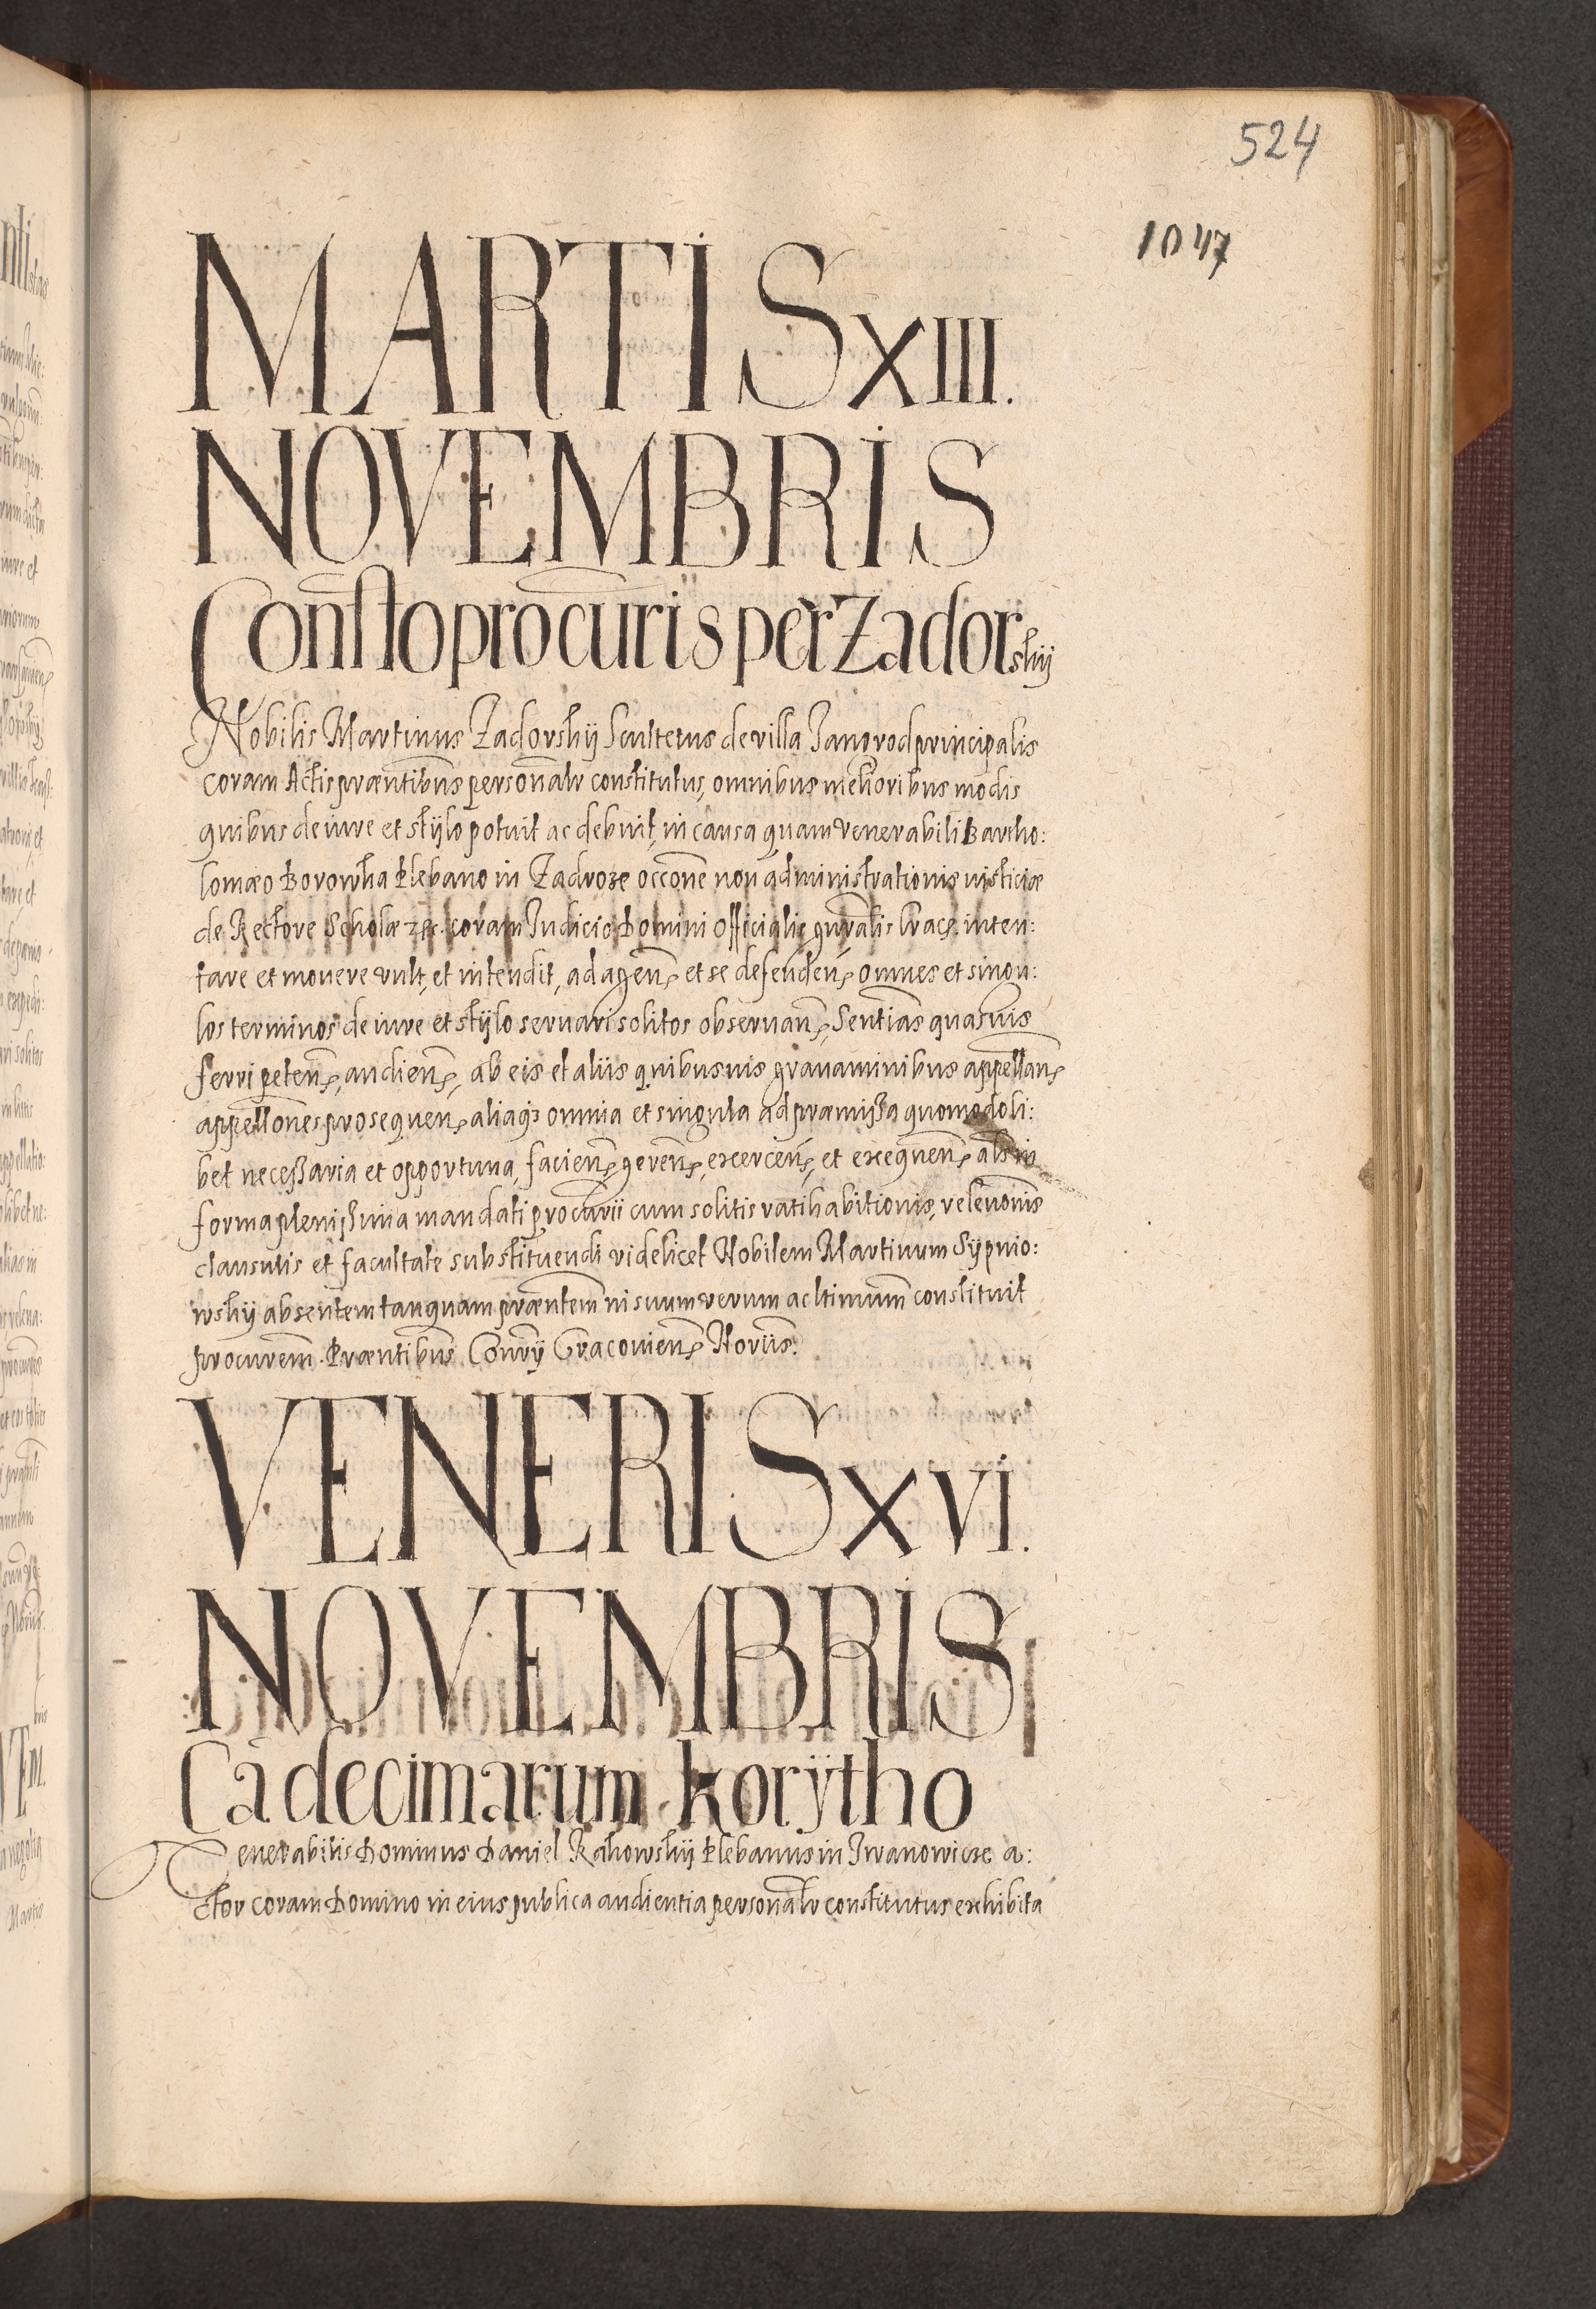 524
1047
MARTIS XIII.
NOVEMBRIS
Consto procuris per Zadorskÿ
Nobilis Martinus Zadorskÿ Scultetus de villa Jangrod principalis
coram Actis præntibus personalr constitutus, omnibus melioribus modis
quibus de iure et stÿlo potuit ac debuit, in causa quam venerabili Bartho:
lomæo Borowka Plebano in Zadroze occone non administrationis iusticiæ
de Rectore Scholæ etc. coram Judicio Domini Officialis gnralis Crac. inten:
tare et mouere vult, et intendit, ad agen. et se defenden. omnes et singu:
los terminos de iure et stÿlo seruari solitos obseruan. Sentias quasuis
ferri peten. audien. ab eis et aliis quibusuis grauaminibus appellan.
appellones prosequen. aliaq3 omnia et singula ad præmissa quomodoli:
bet necessaria et opportuna, facien. geren. exercen. et exequen. als in
forma plenissima mandati procurii cum solitis ratihabitionis, releuonis
clausulis et facultate substituendi videlicet Nobilem Martinum Sÿpnio:
wskÿ absentem tanquam præntem in suum verum ac ltimum constituit
procurem. Præntibus Conrÿ Cracouien. Noriis.
VENERIS XVI.
NOVEMBRIS
Ca decimarum Korÿtho
Venerabilis Dominus Daniel Rakowskÿ Plebanus in Iwanowicze a:
ctor coram Domino in eius publica audientia personalr constitutus exhibita